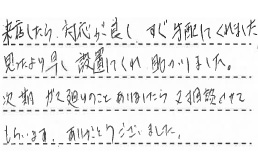 来店したら、対応が良く、すぐ手配してくれました
思ったより早く設置してくれ助かりました。
次期 ガス廻りのことありましたら又相談させて
もらいます。ありがとうございました。